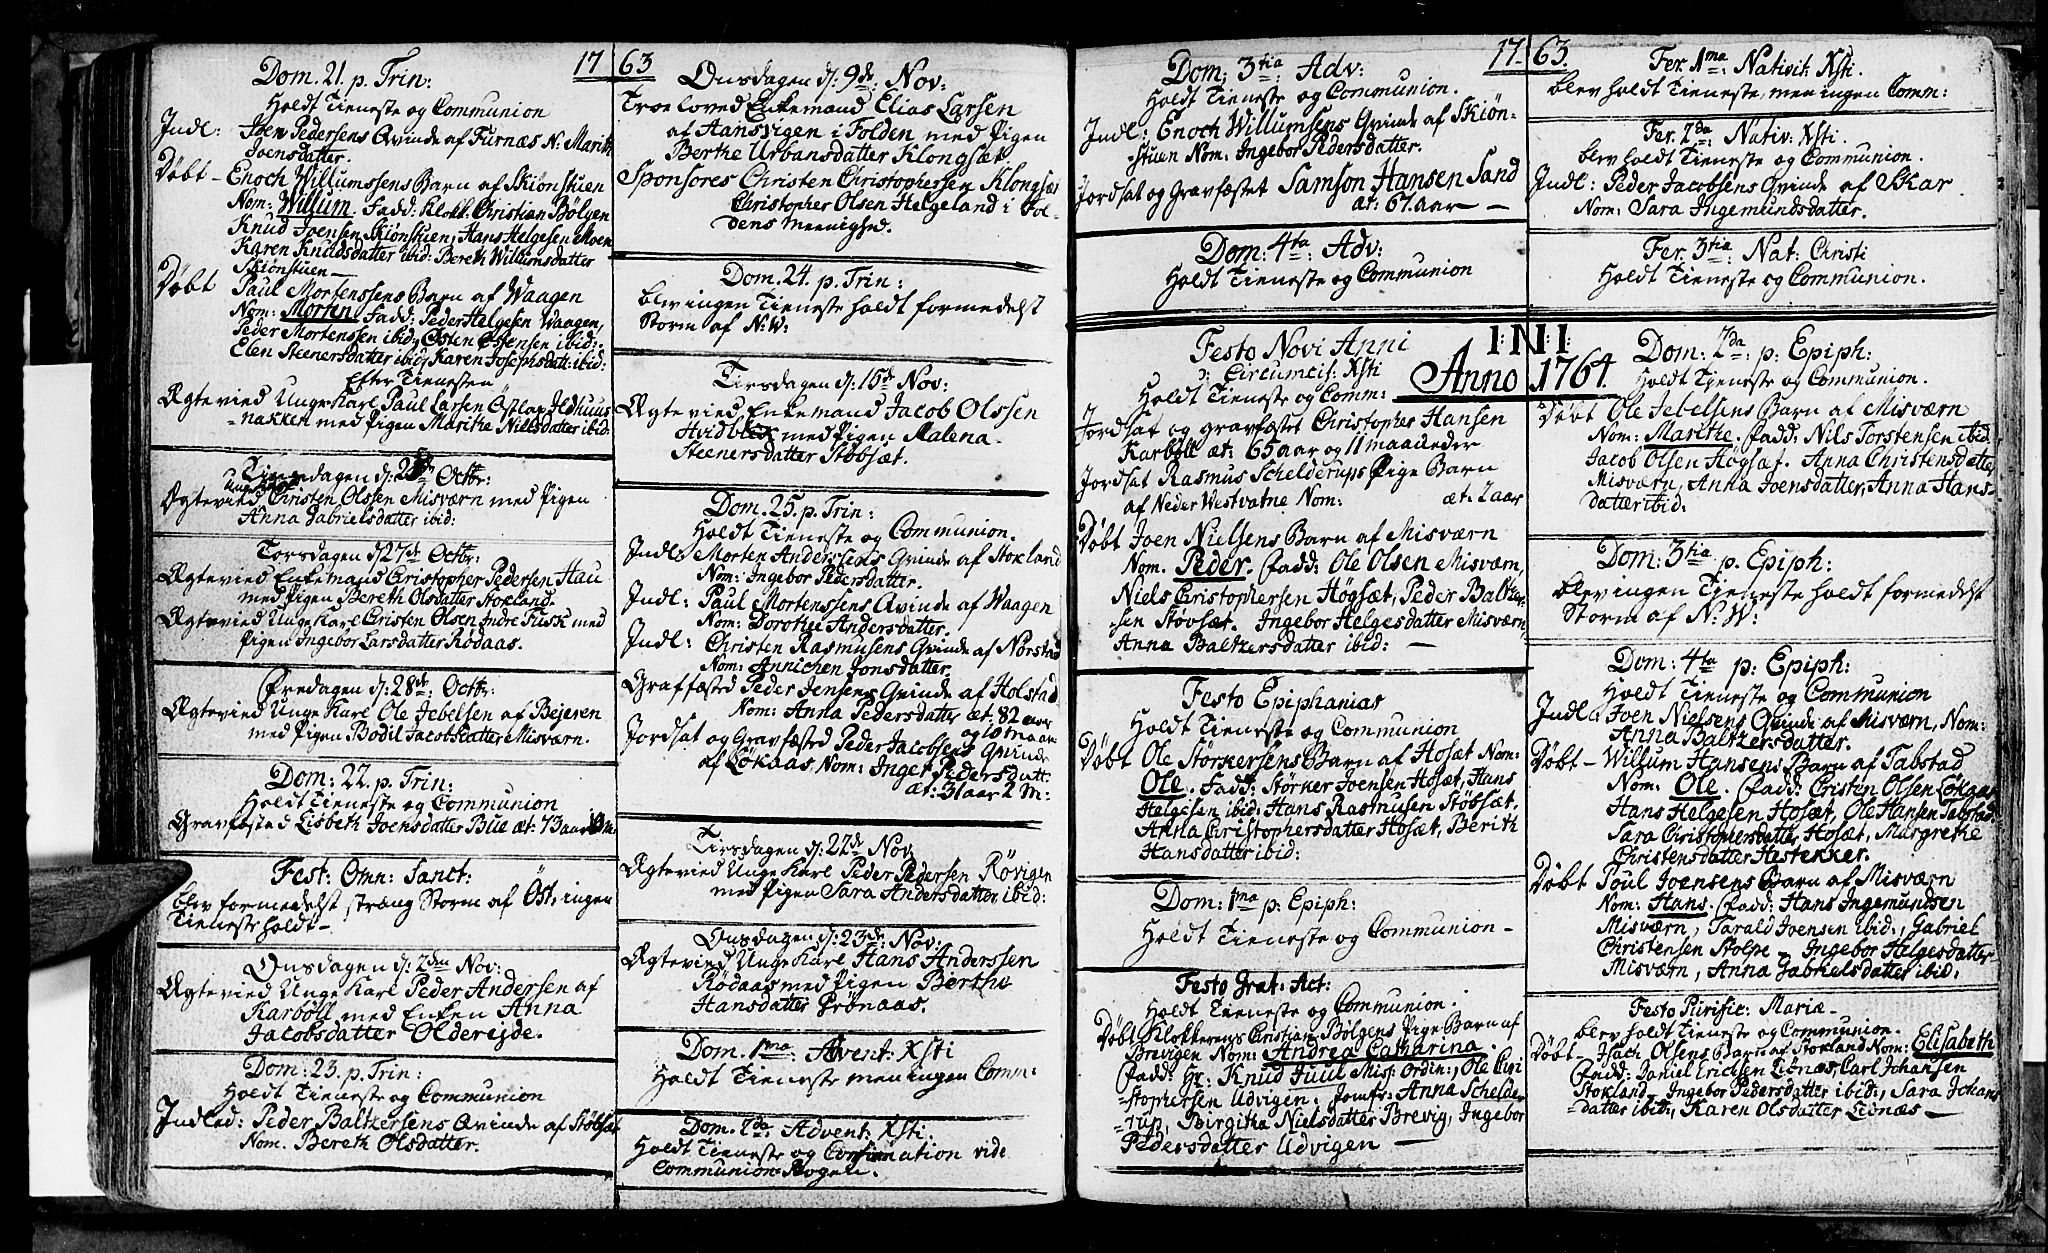 17 63
Dom. 21. p. Trin:
Holdt Tieneste og Communion
Indl: Joen Pedersens Qvinde af Furnæs N: Marith
Joensdatter.
Døbt - Enoch Willumssens Barn af Skiønstuen
Nom: Willum. Fadd: Klokk. Christian Bølgen
Knud Joensen Skiønstuen, Hans Helgesen Moen
Karen Knudsdatter ibid: Bereth Willumsdatter
Skiønstuen -
Døbt Paul Mortenssens Barn af Waagen
Nom: Morten Fadd: Peder Helgesen Waagen,
Peder Mortenssen ibid, Østen Østensen ibid:
Elen Steenersdatter ibid, Karen Josephsdatt: ibid:
Efter Tienesten
Ægteviede Unge Karl Paul Larsen Østlap Ildhuus
=nakken med Pigen Marithe Nielsdatter ibid:
Octbr:
Unge Karl
Ægtevied Christen Olssen Misværn med Pigen
Anna Gabrielsdatter ibid:
Torsdagen d: 27de Octbr:
Ægtevied Enkemand Christopher Pedersen Hau
med Pigen Bereth Olsdatter Stokland.
Ægtevied Unge Karl Cristen Olsen Indre Kusk med
Pigen Ingebor Larsdatter Rødaas.
Fredagen d: 28de: Octbr:
Ægtevied Unge Karl Ole Jebelsen af Bejeren
med Pigen Bodil Jacobsdatter Misværn.
Dom: 22. p. Trin:
Holdt Tieneste og Communion
Gravfæsted Lisbeth Joensdatter Bue æt: 73 aar 10 m:
Fest: Omn: Sanct:
blev formedelst stræng Storm af Öst, ingen
Tieneste holdt -
Onsdagen d: 2den Nov:
Ægtevied Unge Karl Peder Andersen af
Karbøll med Enken Anna
Jacobsdatter Olderejde.
Dom: 23. p. Trin:
Holdt Tieneste og Communion
Indled: Peder Baltzersens Qvinde af Støbset
Nom. Bereth Olsdatter.
Onsdagen d: 9de: Nov:
Troeloved Enkemand Elias Larsen
af Aansvigen i Folden med Pigen
Berthe Urbansdatter Klongsæt.
Sponsores Christen Christophersen Klongsæt
Christopher Olsen Helgeland i Fol-
dens Meenighed.
Dom. 24. p. Trin:
blev ingen Tieneste holdt formedelst
Storm af N: W:
Tirsdagen d: 15de Nov:
Ægtevied Enkemand Jacob Olssen
med Pigen Malena-
Steenersdatter Støbsæt.
Dom. 25. p. Trin:
Holdt Tieneste og Communion.
Indl: Morten Anderssens Qvinde af Stokland
Nom: Ingebor Pedersdatter.
Indl: Paul Mortenssens Qvinde af Waagen
Nom: Dorothe Andersdatter.
Indl: Christen Rasmusens Qvinde af Norstad
Nom: Annichen Jonsdatter.
Graffæsted Peder Jensens Qvinde af Holstad
Nom: Anna Pedersdatter æt. 82 aar
og 10 maan:
Jordsat og Gravfæsted Peder Jacobsens Qvinde
af Løkaas, Nom: Inger Pedersdatt:
æt: 31 aar 2 M:
Tirsdagen d: 22de Nov
Ægtevied Unge Karl Peder Pedersen Røvigen
med Pigen Sara Andersdatter ibid:
Onsdagen d: 23de: Nov:
Ægtevied Unge Karl Hans Anderssen
Rødaas med Pigen Berthe
Hansdatter Grønaas.
Dom. 1ma: Advent: Xsti
Holdt Tieneste men ingen Comm:
Dom. 2da: Advent: Xsti.
Holdt Tieneste og Confirmation vide
Communion-Bogen.
17 63.
Dom: 3tia Adv:
Holdt Tieneste og Communion.
Indl: Enoch Willumsens Qvinde af Skiøn-
stuen Nom: Ingebor Pedersdatter.
Jordsat og Gravfæstet Samson Hansen Sand
æt: 67. aar -
Dom: 4ta: Adv:
Holdt Tieneste og Communion
I: N: I:
Anno 1764.
Festo Novi Anni
d: Circumcis: Xsti
Holdt Tieneste og Comm:
Jordsat og gravfæstet Christopher Hansen
Karbøll æt: 65 aar og 11 maaneder
Jordsat Rasmus Schelderups Pige Barn
af Neder Westvatne Nom: æt: 2 aar
Døbt Joen Nielsens Barn af Misværn
Nom. Peder. Fadd: Ole Olsen Misværn,
Niels Cristophersen Høgsæt, Peder Baltzer-
sen Støvsæt. Ingebor Helgesdatter Misværn,
Anna Baltzersdatter ibid: -
Festo Epiphanias
Holdt Tieneste og Communion
Døbt Ole Størkersens Barn af Hosæt Nom:
Ole. Fadd: Størker Joensen Hosæt, Hans
Helgesen ibid: Hans Rasmusen Støbsæt.
Anna Christophersdatter Hosæt, Berith
Hansdatter ibid:
Dom: 1ma p: Epiph:
Holdt Tieneste og Communion -
Festo Grat: Act:
Holdt Tieneste og Communion.
Døbt Klokkerens Cristian Bølgens Pige Barn af
Brevigen Nom: Andrea Catharina.
Fadd: Hr: Knud Juul Miss: Ordin:, Ole Cri
=stophersen Udvigen: Jomfr: Anna Schelde
=rup, Birgitha Nielsdatter Brevig, Ingebor
Pedersdatter Udvigen -
Fer. 1ma: Nativit: Xsti.
blev holdt Tieneste, men ingen Comm:
Fer. 2da: Nativ: Xsti.
blev holdt Tieneste og Communion.
Indl: Peder Jacobsens Qvinde af Skar
Nom: Sara Ingemundsdatter.
Fer. 3tia: Nat: Christi
Holdt Tieneste og Communion.
Dom: 2da: p: Epiph:
Holdt Tieneste og Communion.
Døbt Ole Jebelsens Barn af Misværn
Nom: Marithe. Fadd: Nils Torstensen ibid
Jacob Olsen Høgsæt. Anna Christensdatter
Misværn, Anna Joensdatter, Anna Hans-
datter ibid:
Dom: 3tia p. Epiph:
blev ingen Tieneste holdt formedelst
Storm af N: W:
Dom: 4ta p: Epiph:
Holdt Tieneste og Communion
Indl: Joen Nielsens Qvinde af Misværn, Nom:
Anna Baltzersdatter.
Døbt - Willum Hansens Barn af Tabstad
Nom: Ole. Fadd: Cristen Olsen Løkaas
Hans Helgesen Hosæt, Ole Hansen Tabstad
Sara Christophersdatter Hosæt, Margrethe
Christensdatter Hestekker.
Døbt Poul Joensens Barn af Misværn
Nom: Hans. Fadd: Hans Ingemundsen
Misværn, Tarald Joensen ibid:, Gabriel
Christensen Stolpe - Ingebor Helgesdatter
Misværn, Anna Gabrielsdatter ibid:
Festo Purific: Mariæ -
blev holdt Tieneste og Communion.
Døbt - Isach Olsens Barn af Stokland Nom: Elisabeth
Fadd: Daniel Ericksen Lionæs, Carl Johansen
Stokland, Ingebor Pedersdatter ibid:, Sara Johans
=datter ibid:, Karen Olsdatter Lionæs -